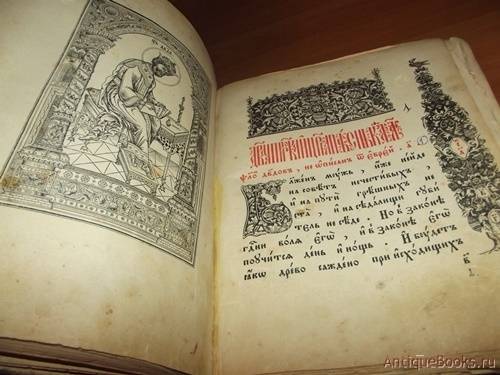 л҃
ѱало́мъ дв҃довъ, не ѡ҆пи́санъ ѿ є҆вре́й · а҃
Бл҃же́нъ мꙋ́жъ, и҆́же не и҆́де
на совѣ́тъ нечести́выхъ ·
и҆ на пꙋти́ грѣ́шныхъ не
ста̀, и҆ на сѣда́лищи гꙋби́
тель не сѣ́де · Но въ зако́нѣ
гдⷭ҇ни во́лѧ є҆гѡ̀, и҆ въ зако́нѣ є҆гѡ̀
поꙋчи́тсѧ де́нь и҆ но́щь · И҆ бꙋ́детъ
ꙗ҆́кѡ дре́во сажде́но при и҆схо́дищихъ
AntiqueBooks.ru